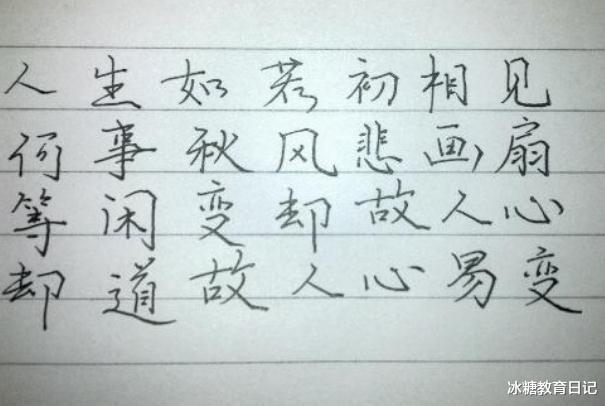 人生如若初相见
何事秋风悲画扇
等闲变却故人心
却道故人心易变
冰糖教育日记